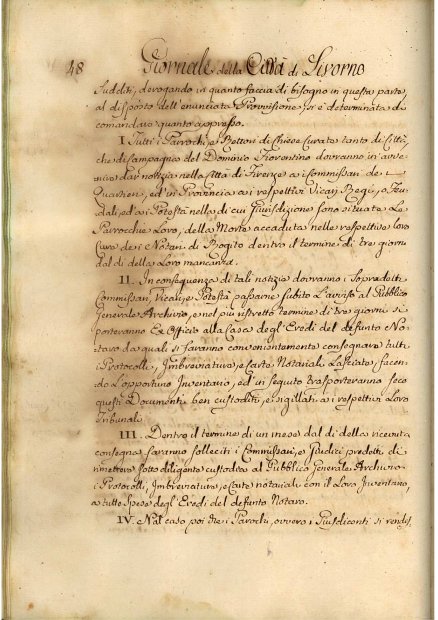 48 Giornale della Città di Livorno
Sudditi, derogando in quanto faccia di bisogno in questa parte
al disposto dell'enunciata Provvisione, si è determinata di
comandare quanto appresso.
I. Tutti i Parrochi, e Rettori di Chiese Curate tanto di Città,
che di Campagna del Dominio Fiorentino dovranno in avve-
nire dar notizia nella Città di Firenze a i Commissari de
Quartieri, ed in Provincia a i respettivi Vicarj Regj, o Feu-
dali, ed a i Potestà nella di cui Giurisdizione sono situate Le
Parrocchie Loro, della Morte accaduta nelle respettive Loro
Cure de i Notari di Rogito dentro il termine di tre giorni
dal dì della Loro mancanza.
II. In conseguenza di tali notizie dovranno i Sopradetti
Commissari, Vicarj, e Potestà passarne subito L'avviso al Pubblico
Generale Archivio, e nel più ristretto termine di tre giorni si
porteranno Ex Officio alla Casa degl'Eredi del defunto No-
taro da quali si faranno convenientemente consegnare tutti
i Protocolli, Imbreviature, e Carte Notariali Lasciate, facendo-
ne L'opportuno Inventario, ed in seguito trasporteranno seco
questi Documenti ben custoditi, e sigillati a i respettivi Loro
Tribunali.
III. Dentro il termine di un mese dal dì della ricevuta
consegna saranno solleciti i Commissari, e Giudici predetti di
rimettere sotto diligente custodia al Pubblico Generale Archivio
i Protocolli, Imbreviature, e Carte notariali con il Loro Inventario,
a tutte Spese degl'Eredi del defunto Notaro.
IV. Nel caso poi che i Parochi, ovvero i Giusdicenti si rendes.